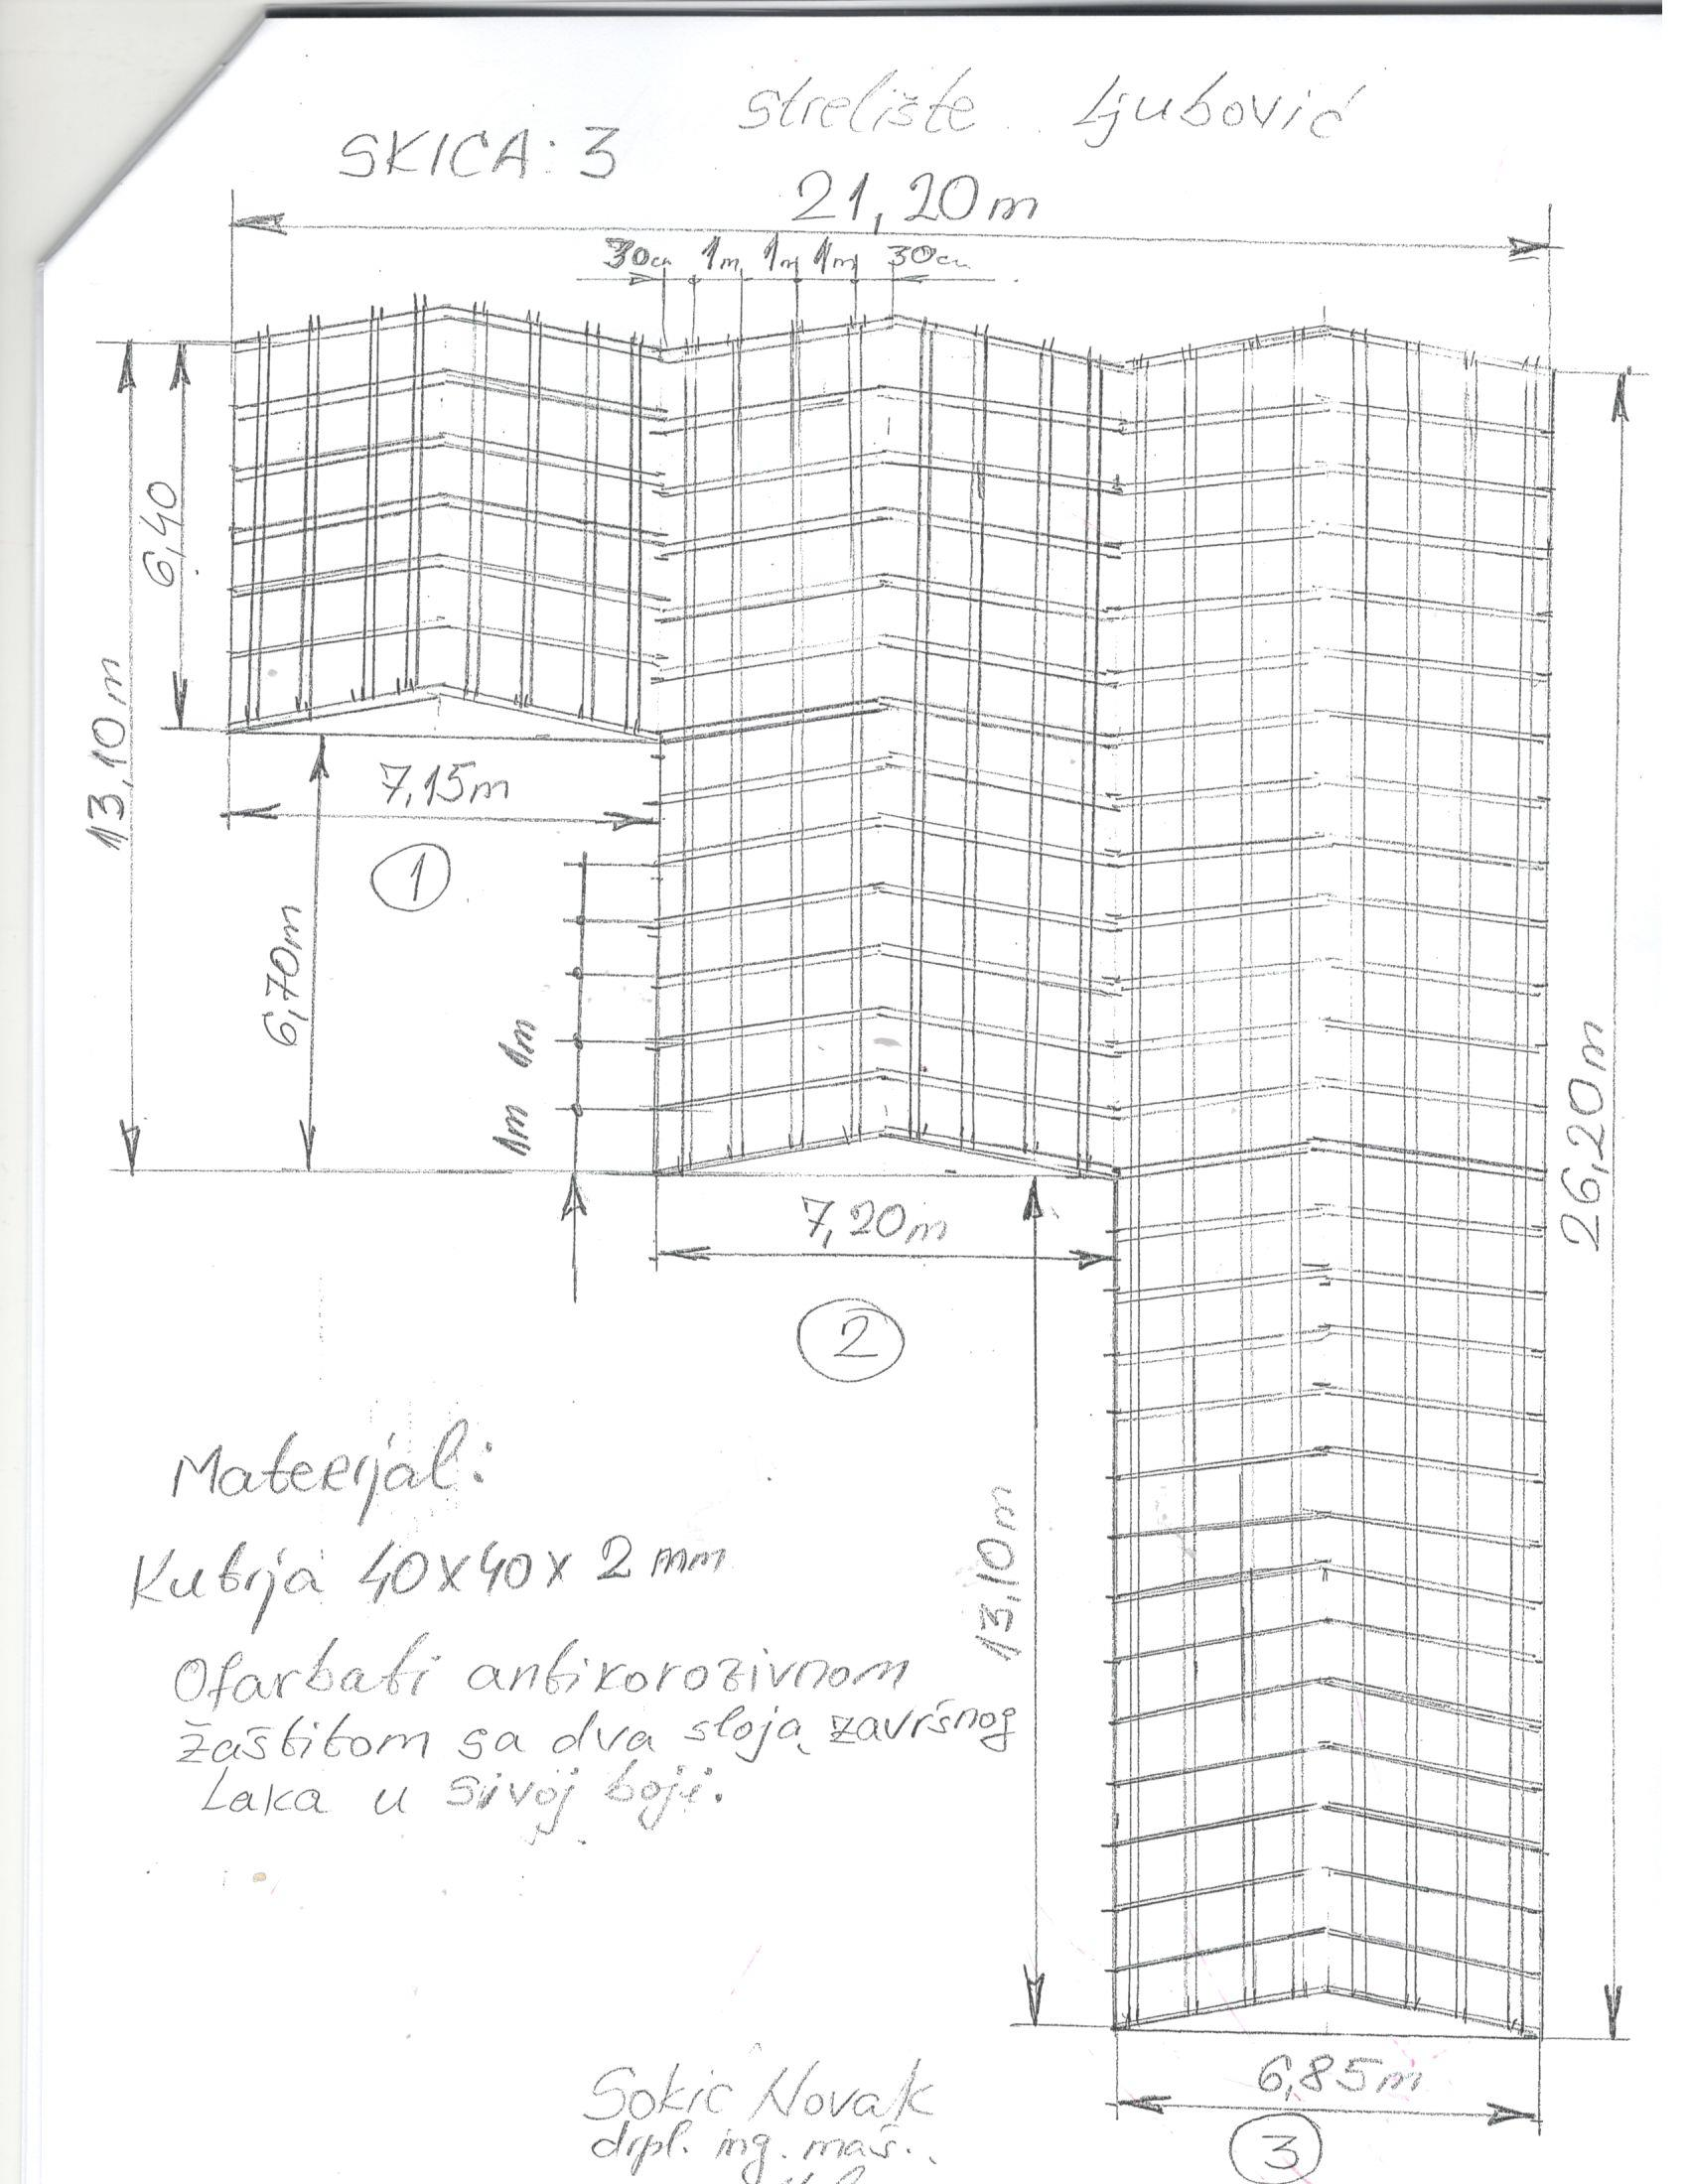 strelište Ljubović
SKICA: 3
21,20m
30cm 1m 1m 1m 30cm
6,40
13,10m
7,15m
1
6,70m
1m 1m
7,20m
2
26,20m
13,10m
Materijal:
Kutija 40x40x2mm
Ofarbati antikorozivnom
zaštitom sa dva sloja završnog
Laka u sivoj boji.
6,85m
3
Sokić Novak
dipl. ing. maš.